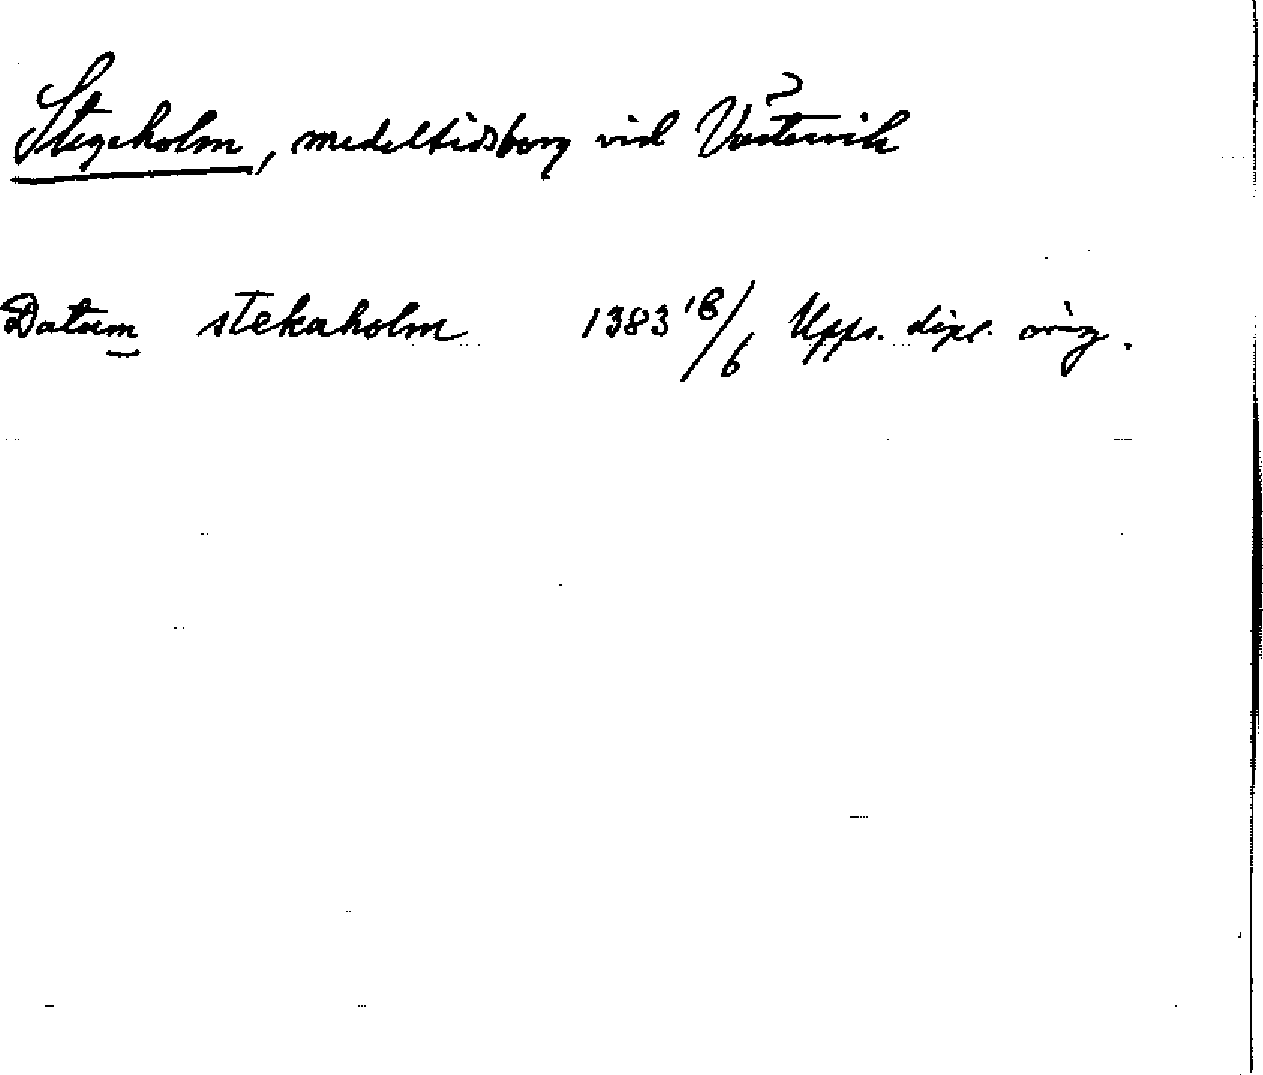 Stegeholm, medeltidsborg vid Västervik
Datum stekaholm 1383 18/6 Upps. dipl. orig.